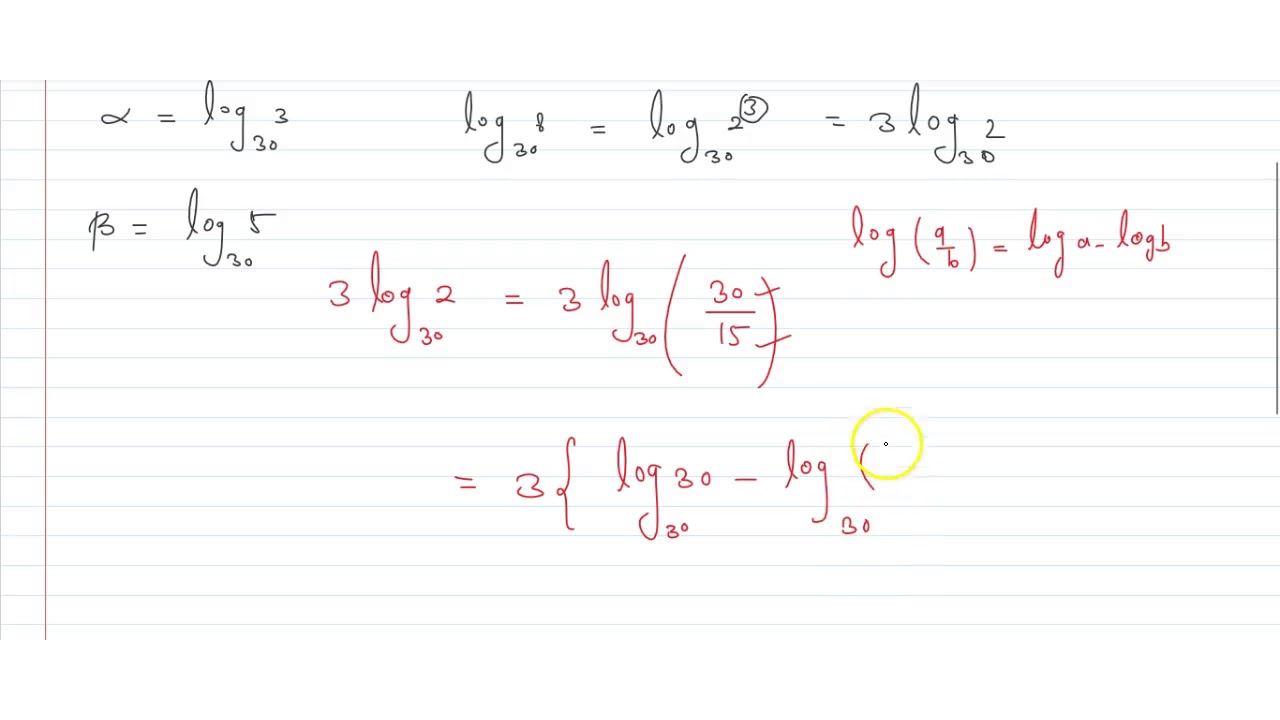 α = log₃₀ 3 log₃₀ 8 = log₃₀ 2³ = 3 log₃₀ 2
β = log₃₀ 5 log (a/b) = log a - log b
3 log₃₀ 2 = 3 log₃₀ (30/15)
= 3 { log₃₀ 30 - log₃₀ (